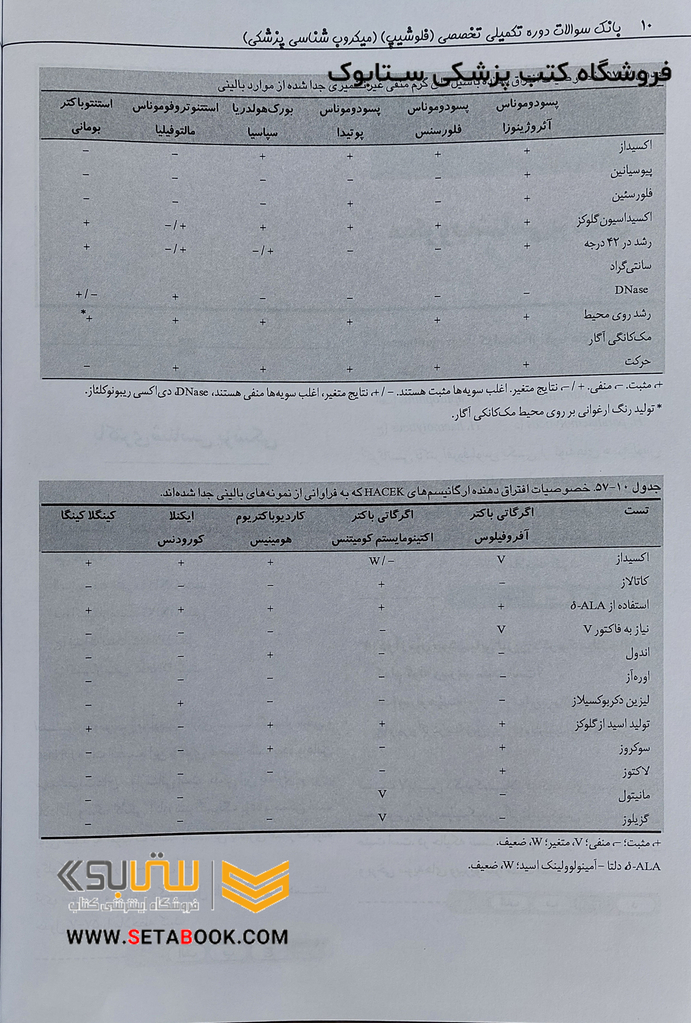 ۱۰ بانک سوالات دوره تکمیلی تخصصی (فلوشیپ) (میکروب شناسی پزشکی)
فروشگاه کتب پزشکی ستابوک
گرم منفی غیرتخمیری جدا شده از موارد بالینی
پسودوموناس آئروژینوزا پسودوموناس فلورسنس پسودوموناس پوتیدا بورک‌هولدریا سپاسیا استنوتروفوموناس مالتوفیلیا اسنتوباکتر بومانی
اکسیداز + + + + – –
پیوسیانین + – – – – –
فلورسئین + – + – – –
اکسیداسیون گلوکز + + + + +/– +
رشد در ۴۲ درجه سانتی‌گراد + – – +/– +/– +
DNase – – – – + –/+
رشد روی محیط مک‌کانگی آگار + + + + + +*
حرکت + + + + + –
+، مثبت. –، منفی. + / –، نتایج متغیر. اغلب سویه‌ها مثبت هستند. – / +، نتایج متغیر، اغلب سویه‌ها منفی هستند، DNase، دی‌اکسی ریبونوکلئاز.
* تولید رنگ ارغوانی بر روی محیط مک‌کانکی آگار.
جدول ۱۰–۵۷. خصوصیات افتراق دهنده ارگانیسم‌های HACEK که به فراوانی از نمونه‌های بالینی جدا شده‌اند.
تست اگرگاتی باکتر آفروفیلوس اگرگاتی باکتر اکتینومایستم کومیتنس کاردیوباکتریوم هومینیس ایکنلا کورودنس کینگلا کینگا
اکسیداز V –/W + + +
کاتالاز – + – – –
استفاده از δ-ALA + + + + +
نیاز به فاکتور V V – – – –
اندول – – + – –
اوره‌آز – – – – –
لیزین دکربوکسیلاز – – – + –
تولید اسید از گلوکز + + + – +
سوکروز + – + – –
لاکتوز + – – – –
مانیتول – V – – –
گزیلوز – V – – –
+، مثبت؛ –، منفی؛ V، متغیر؛ W، ضعیف.
δ-ALA، دلتا – آمینولوولینک اسید؛ W، ضعیف.
ستابوک
فروشگاه اینترنتی کتاب
WWW.SETABOOK.COM